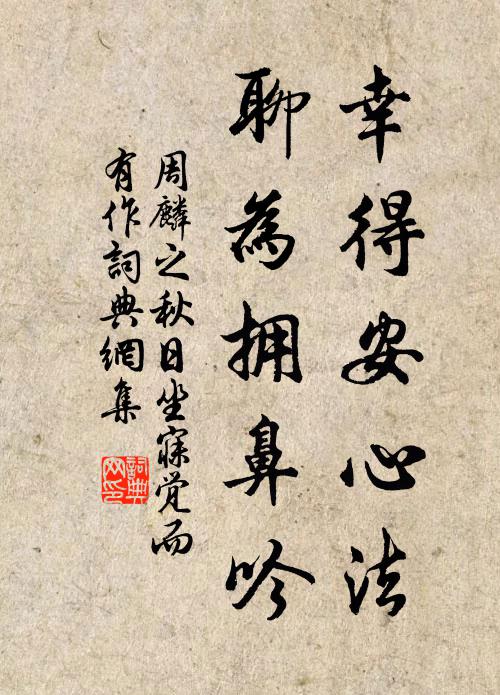 幸得安心法
聊為拥鼻吟
周麟之秋日坐寐觉而
有作詞典網集
詞典
网印